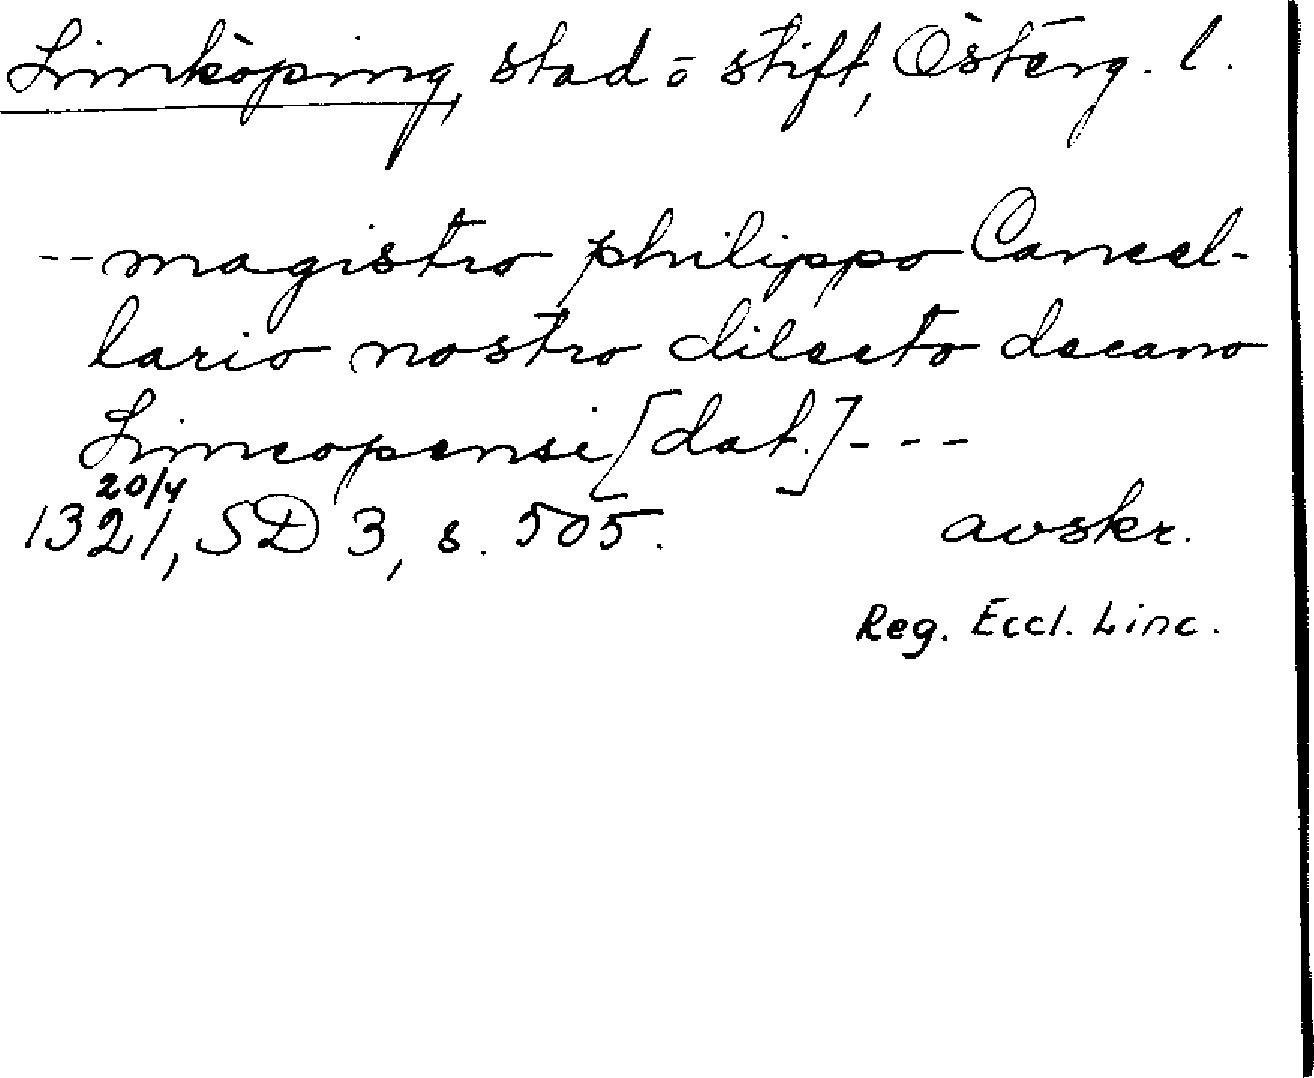 Linköping, stad o stift, Österg. l.
-- magistro philippo Cancel-
lario nostro dilecto decano
Lincopensi [dat.] ---
20/4
1321, SD 3, s. 505. avskr.
Reg. Eccl. Linc.